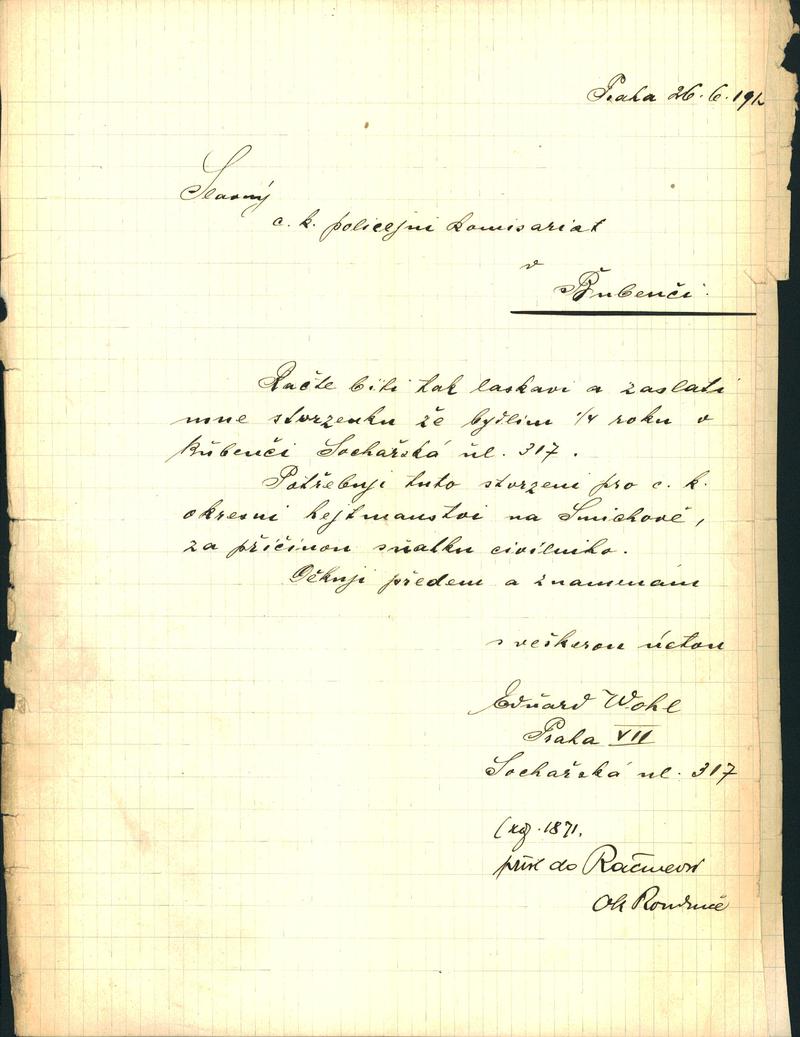 Praha 26.6.191
Slavný
c. k. policejni komisariat
v
Bubenči.
Račte biti tak laskavi a zaslati
mne stvrzenku že bydlim 1/4 roku v
Bubenči Sochařská ul. 317.
Potřebuji tuto stvrzeni pro c. k.
okresni hejtmanstvi na Smichově,
za příčinou sňatku civilniho.
Očkuji předem a znamenám
s veškerou úctou
Eduard Wohl
Praha VII
Sochařská ul. 317
1871.
přísl do
Ok Roudnic